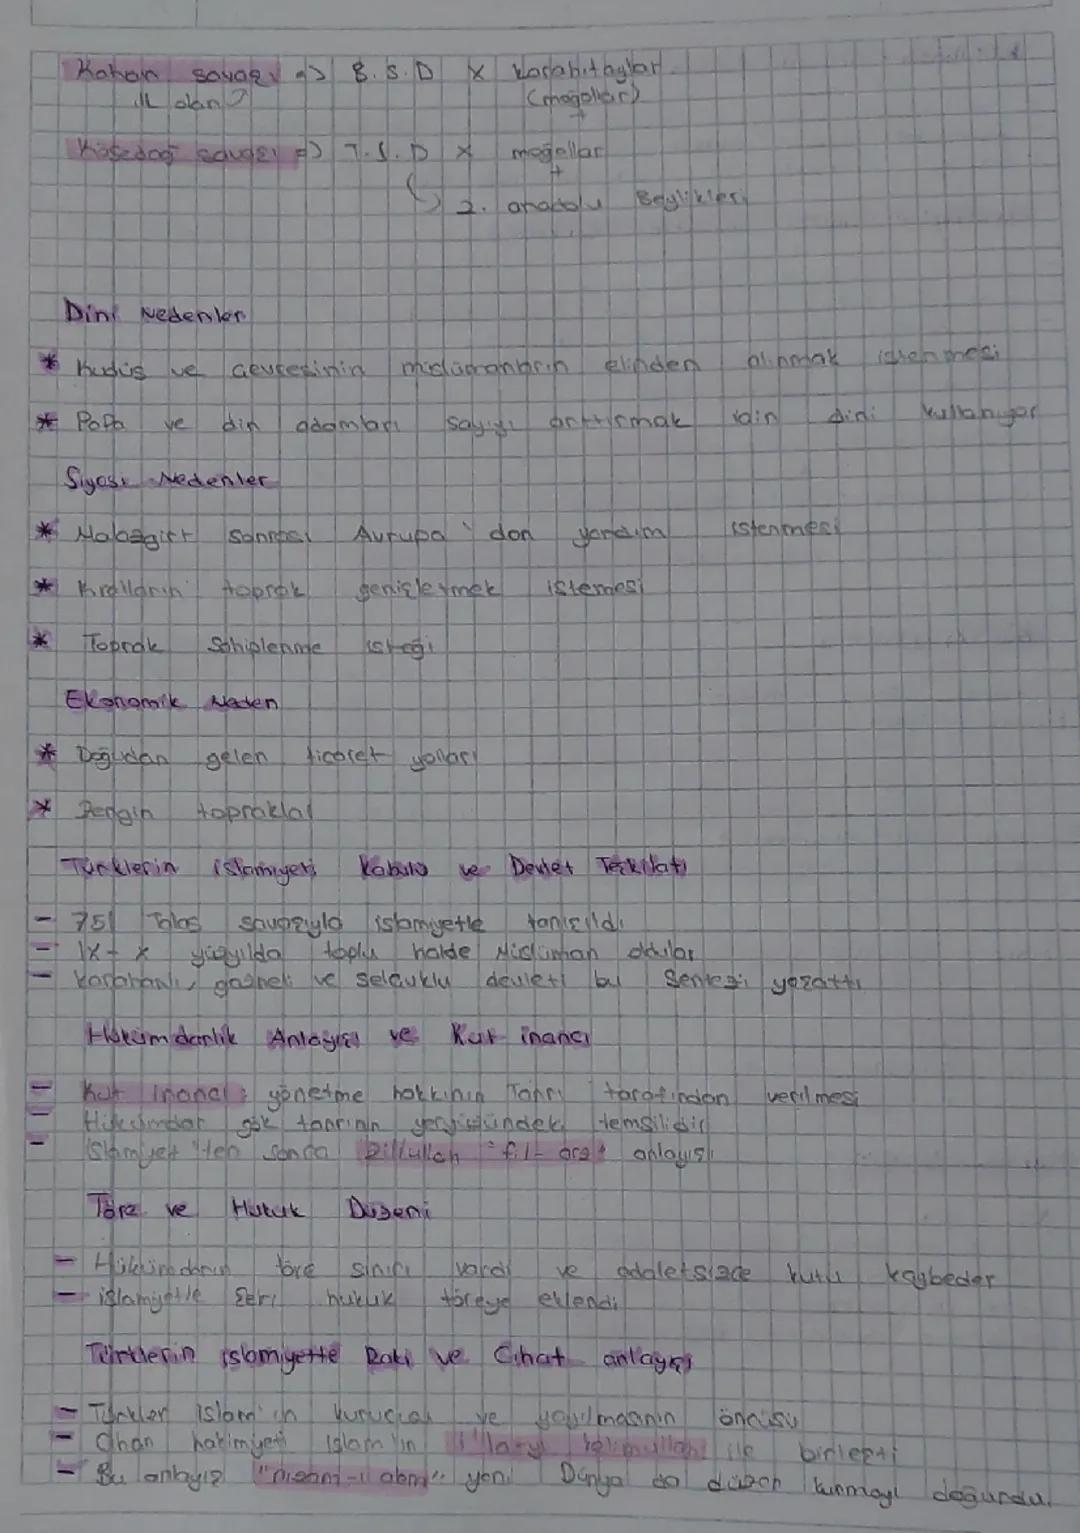 Katvan savaşı => B.S.D X Karahitaylar
ilk olan? (moğollar)
Kösedağ savaşı => T.S.D X moğollar
2. anadolu Beylikleri
Dini Nedenler
* Kudüs ve çevresinin müslümanların elinden alınmak istenmesi
* Papa ve din adamları sayıyı arttırmak için dini kullanıyor
Siyasi Nedenler
* Malazgirt sonrası Avrupa'dan yardım istenmesi
* Kralların toprak genişletmek istemesi
* Toprak Sahiplenme isteği
Ekonomik Neden
* Doğudan gelen ticaret yolları
* Zengin topraklar
Türklerin islamiyeti Kabulü ve Devlet Teşkilatı
- 751 Talas savaşıyla islamiyetle tanışıldı
- IX - X yüzyılda toplu halde Müslüman oldular
- Karahanlı, gazneli ve selçuklu devleti bu Sentezi yarattı
Hükümdarlık Anlayışı ve Kut inancı
- Kut inancı: yönetme hakkının Tanrı tarafından verilmesi
- Hükümdar gök tanrının yeryüzündeki temsilidir
- İslamiyet'ten sonra Zillullah fil-arz anlayışı
Töre ve Hukuk Düzeni
- Hükümdarın töre sınırı vardı ve adaletsizce kutu kaybeder
- islamiyetle Şeri hukuk töreye eklendi
Türklerin islamiyette Rolü ve Cihat anlayışı
- Türkler İslam'ın kurucusu ve yayılmasının öncüsü
- Cihan hakimiyeti İslam'ın ile birleşti
- Bu anlayış "nizam-ı alem" yeni Dünya da düzen kurmayı doğurdu.